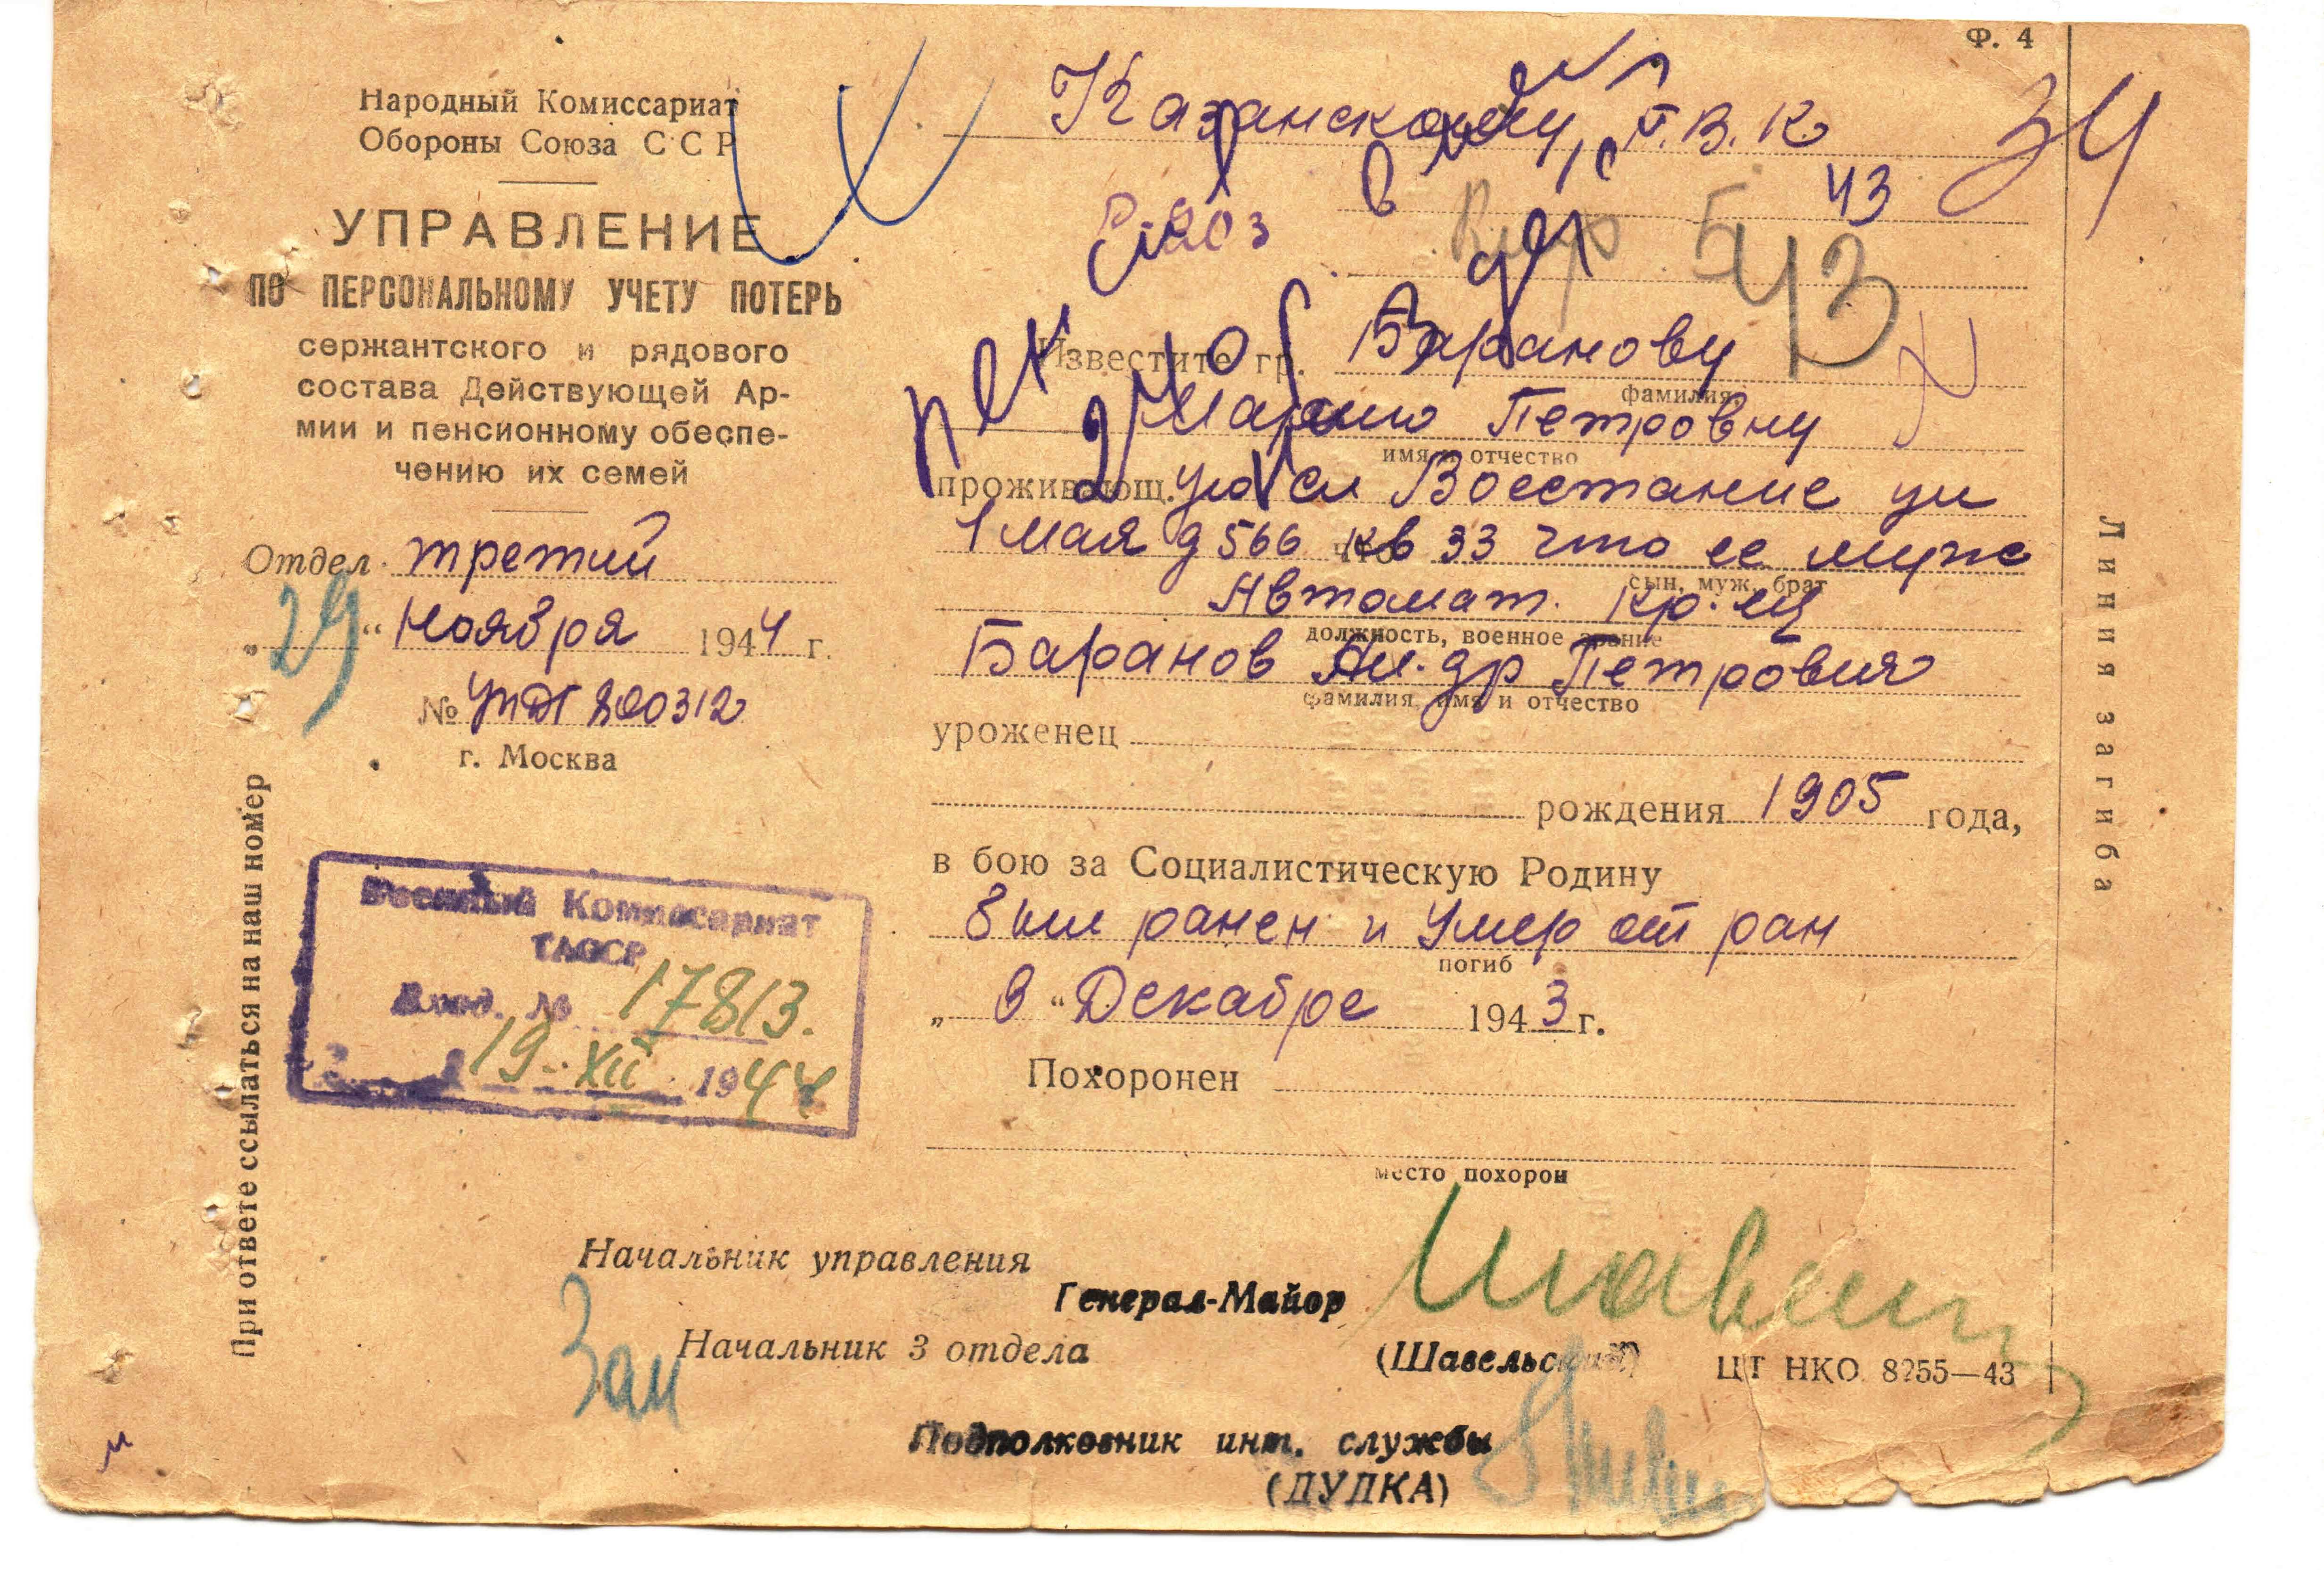 Ф. 4
Народный Комиссариат
Обороны Союза ССР
УПРАВЛЕНИЕ
ПО ПЕРСОНАЛЬНОМУ УЧЕТУ ПОТЕРЬ
сержантского и рядового
состава Действующей Ар-
мии и пенсионному обеспе-
чению их семей
Отдел третий
„29“ Ноября 1944 г.
№ 800312
г. Москва
При ответе ссылаться на наш номер
Военный Комиссариат
ТАССР
Вход. № 17813.
19-XII 1944
Казанскому Г.В.К
34
43
43
Известите гр. Баранову
фамилия
Марию Петровну
имя и отчество
проживающ. Восстание ул
1 мая д 566 кв 33 что ее муж
сын, муж, брат
Автомат. кр. ец
должность, военное звание
Баранов Ал-др Петрович
фамилия, имя и отчество
уроженец
рождения 1905 года,
в бою за Социалистическую Родину
был ранен и умер от ран
погиб
„ 9 “ Декабре 1943 г.
Похоронен
место похорон
Начальник управления
Генерал-Майор
(Шавельский)
Зам Начальник 3 отдела
Подполковник инт. службы
(ДУДКА)
ЦТ НКО 8255—43
Линия загиба